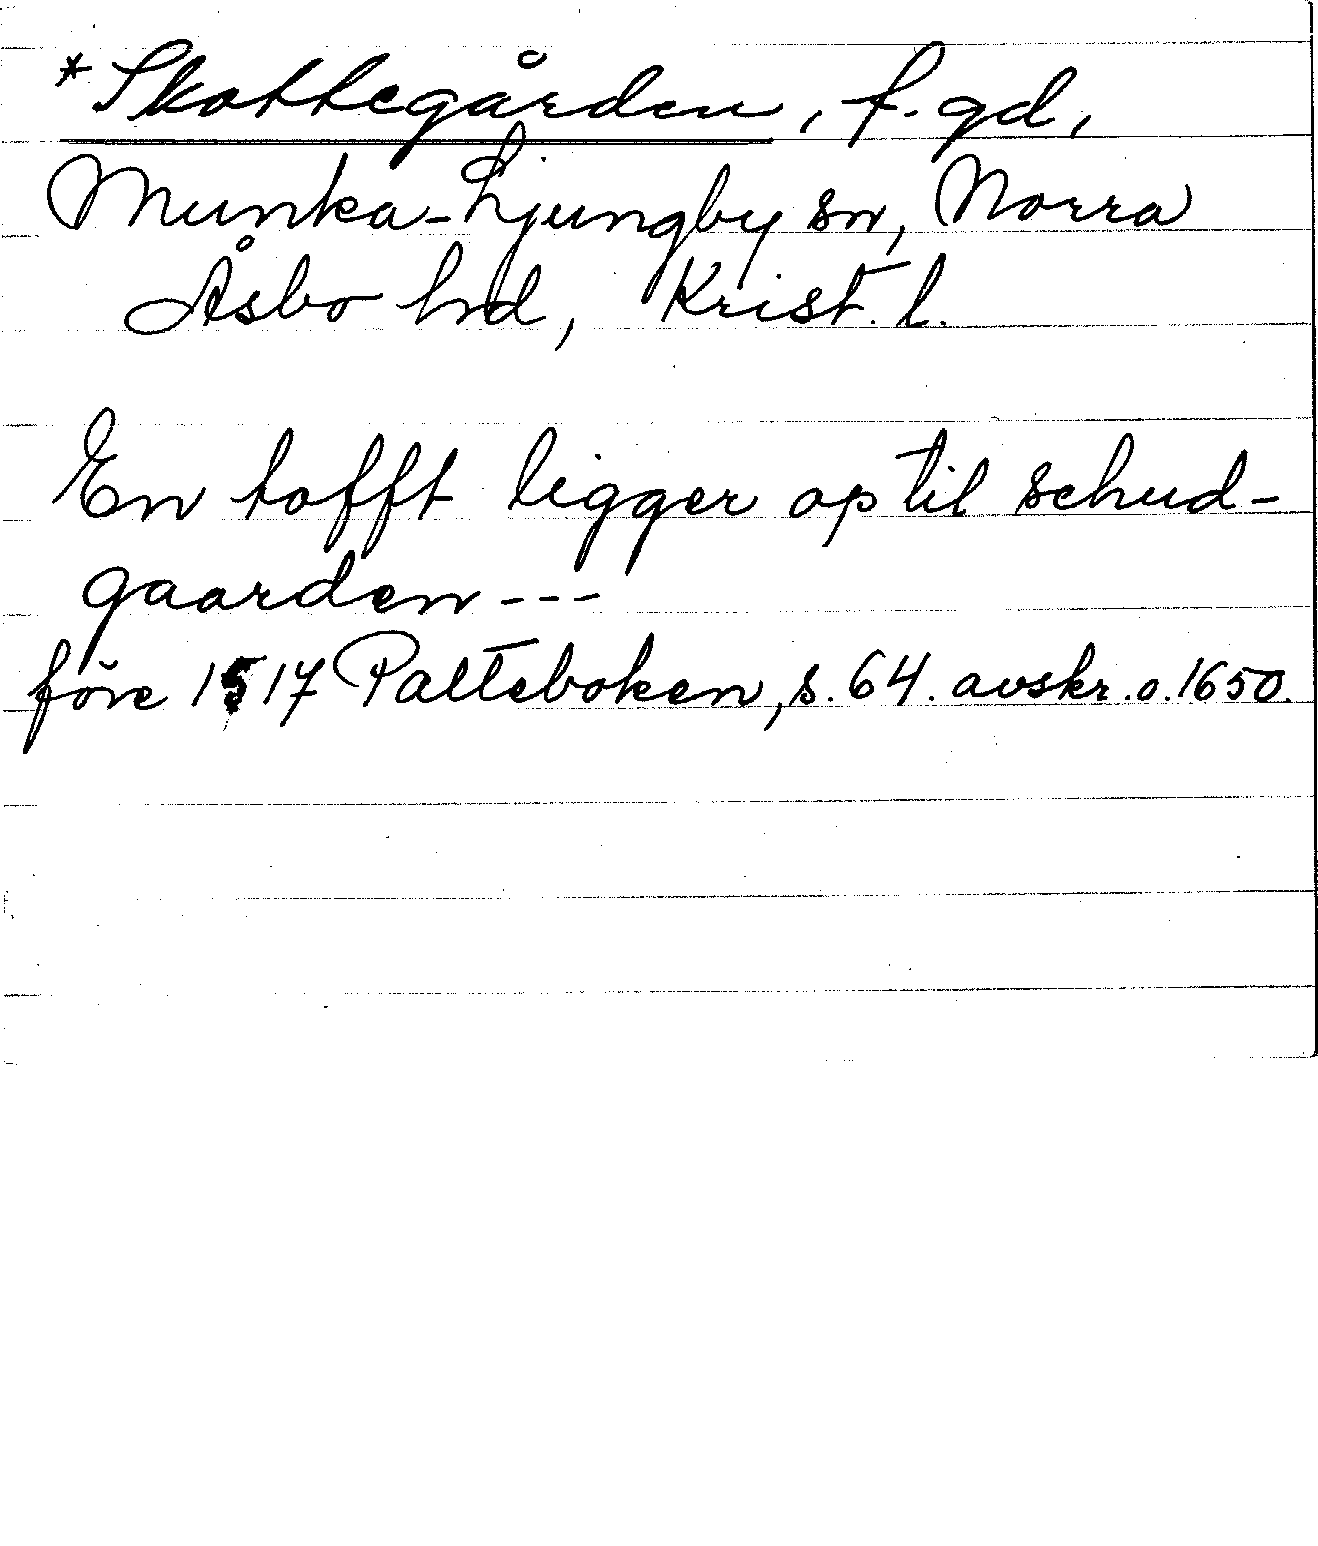 *Skottegården, f. gd,
Munka-Ljungby sn, Norra
Åsbo hd, Krist. l.
En tofft ligger op til schud-
gaarden ---
före 1517 Palteboken, s. 64. avskr. o. 1650.